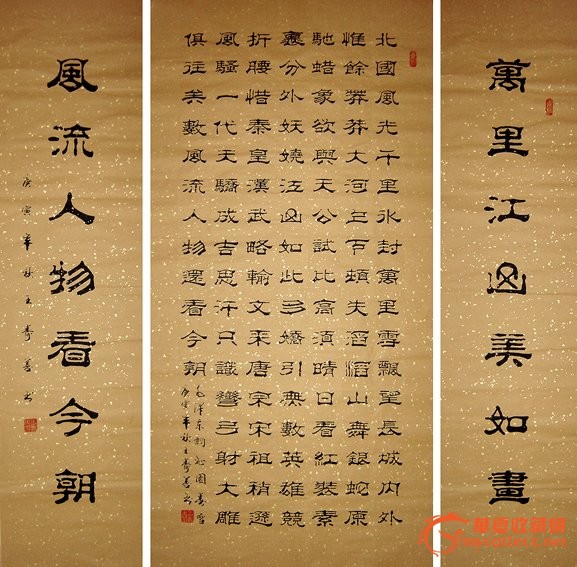 萬里江山美如畫
北國風光千里氷封萬里雪飄望長城内外
惟餘莽莽大河上下頓失滔滔山舞銀蛇原
馳蜡象欲與天公試比高須晴日看紅裝素
裹分外妖嬈江山如此多嬌引無數英雄競
折腰惜秦皇漢武略輸文采唐宗宋祖稍遜
風騷一代天驕成吉思汗只識彎弓射大雕
俱往矣數風流人物還看今朝
毛澤東詞沁園春雪
庚寅年秋王壽善书
風流人物看今朝
庚寅年秋王壽善书
华夏收藏网